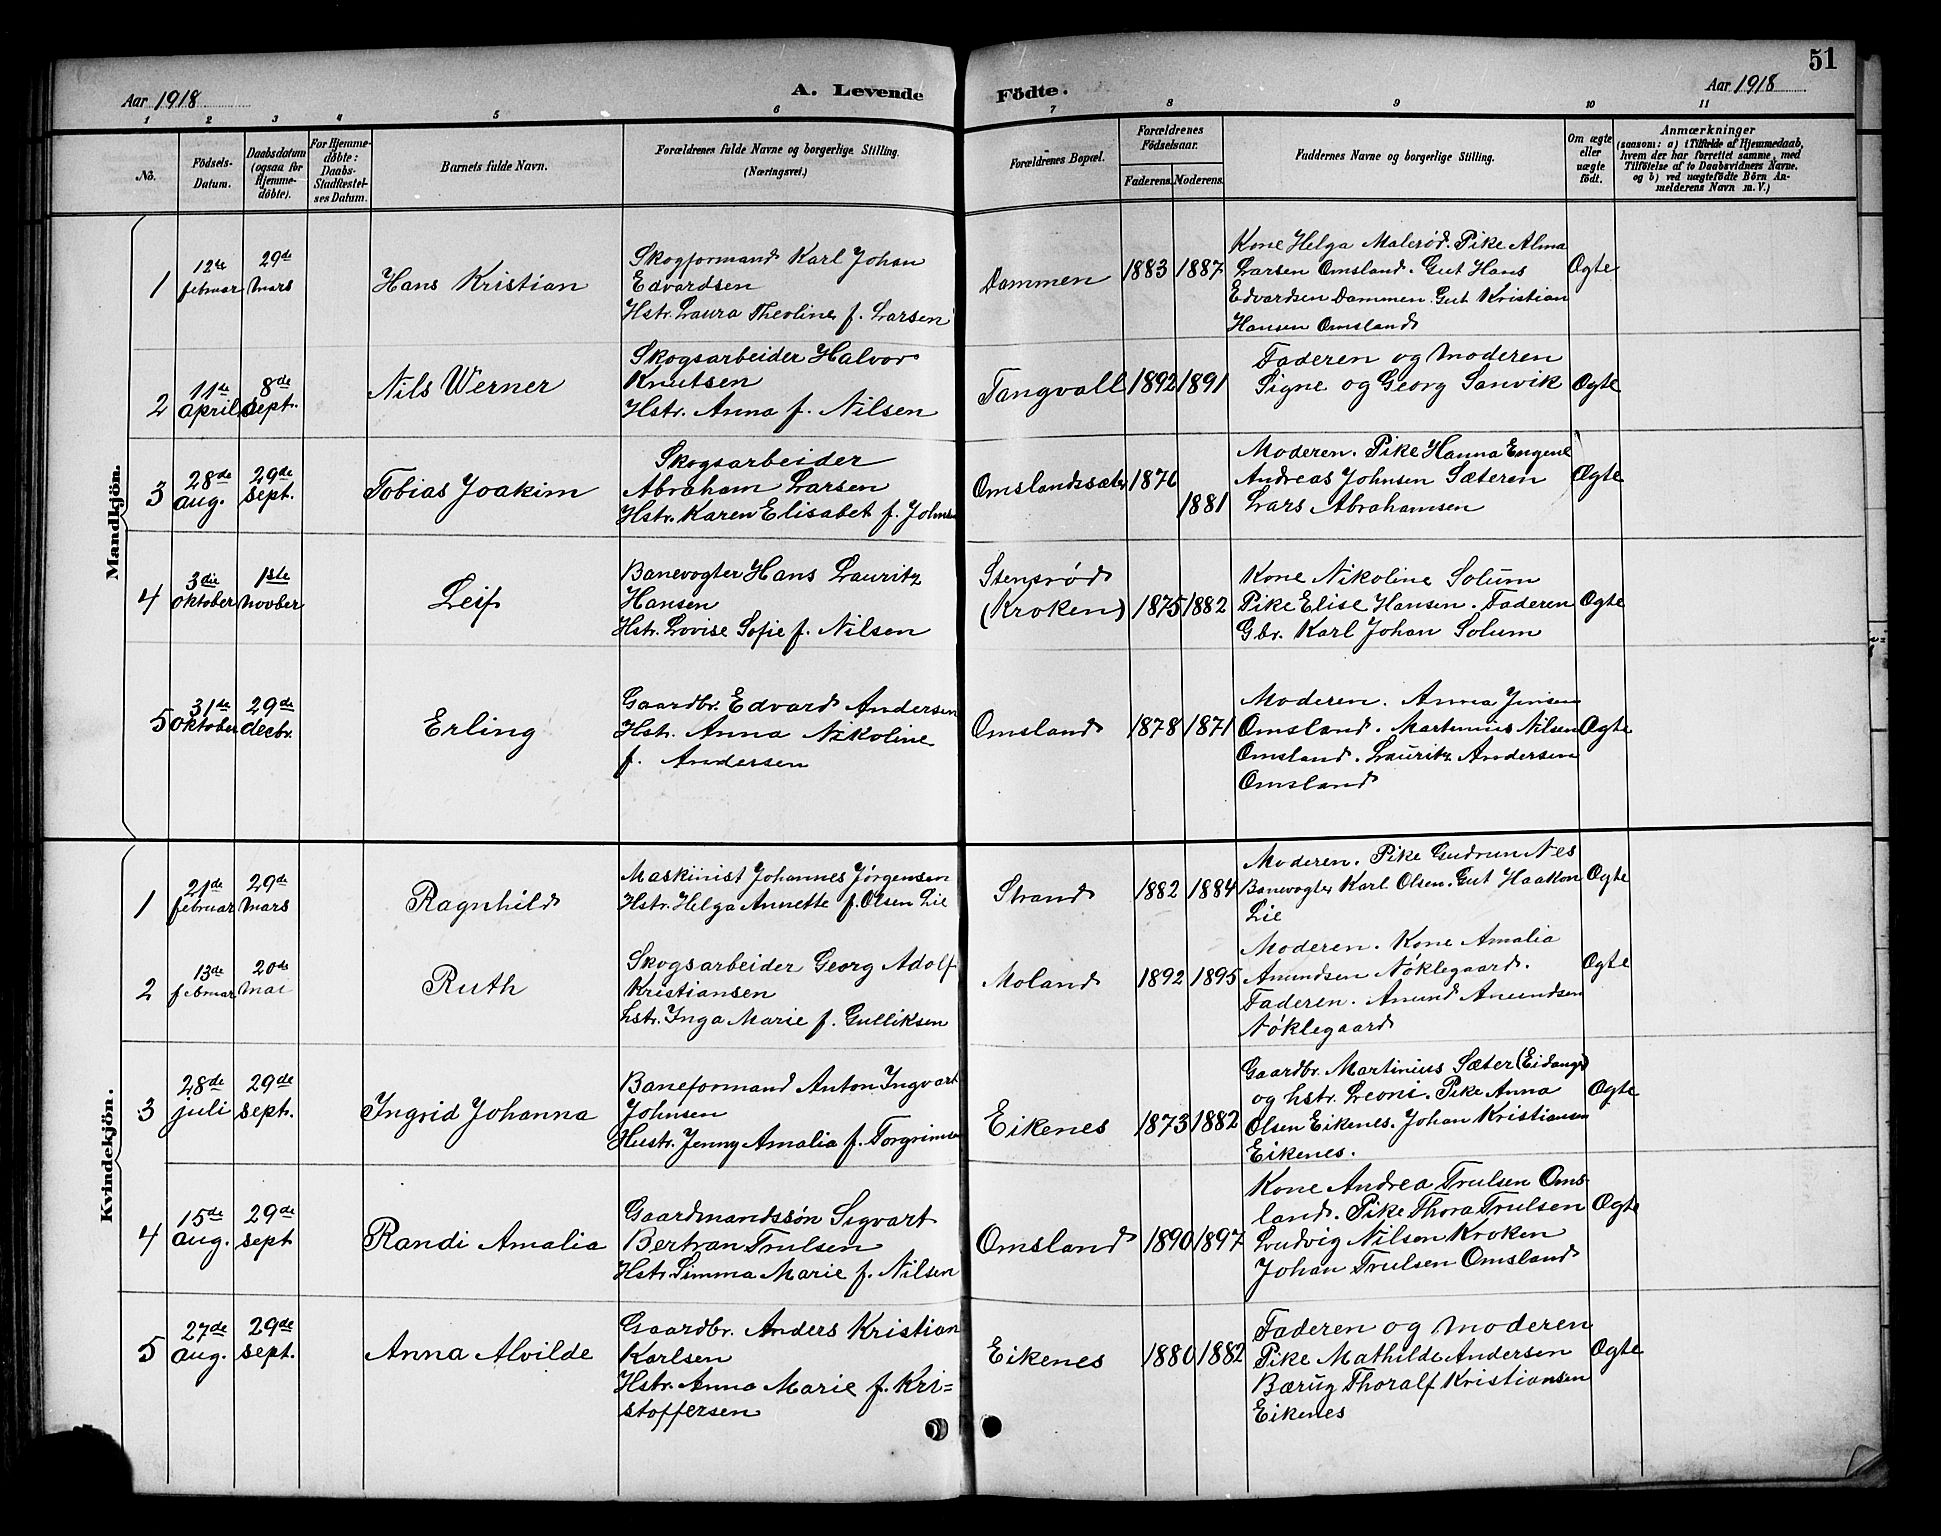 51
Aar 1918
A. Levende Födte.
Aar 1918
1 2 3 4 5 6 7 8 9 10 11
No.
Födsels-
Datum.
Daabsdatum
(ogsaa for
Hjemme-
döbte).
For Hjemme-
döbte:
Daabs-
Stadfæstel-
ses Datum.
Barnets fulde Navn.
Forældrenes fulde Navne og borgerlige Stilling.
(Næringsvei.)
Forældrenes Bopæl.
Forældrenes
Födselsaar.
Faderens. Moderens.
Faddernes Navne og borgerlige Stilling.
Om ægte
eller
uægte
födt.
Anmærkninger
(saasom: a) i Tilfælde af Hjemmedaab,
hvem der har forrettet samme, med
Tilföielse af to Daabsvidners Navne.
og b) ved uægtefödte Börn An-
melderens Navn m. V.)
Mandkjön.
1
12te
februar
29de
mars
Hans Kristian
Skogformand Karl Johan
Edvardsen
Hstr. Laura Theoline f. Larsen
Dammen
1883 1887
Kone Helga Malerød. Pike Alma
Larsen Omsland. Gut Hans
Edvardsen Dammen. Gut Kristian
Hansen Omsland
Ægte
2
11de
april
8de
sept.
Nils Werner
Skogsarbeider Halvor
Knutsen
Hstr. Anna f. Nilsen
Tangvall
1892 1891
Faderen og moderen
Signe og Georg Sanvik
Ægte
3
28de
aug.
29de
sept.
Tobias Joakim
Skogsarbeider
Abraham Larsen
Hstr. Karen Elisabet f. Johnsen
Omslandssæter
1876
1881
Moderen. Pike Hanna Eugene
Andreas Johnsen Sæteren
Lars Abrahamsen
Ægte
4
3die
oktober
1ste
novber
Leif
Banevogter Hans Lauritz
Hansen
Hstr. Lovise Sofie f. Nilsen
Stensrød
(Kroken)
1875 1882
Kone Nikoline Solum
Pike Elise Hansen. Faderen
Gbr. Karl Johan Solum
Ægte
5
31de
oktober
29de
decbr.
Erling
Gaardbr. Edvard Andersen
Hstr. Anna Nikoline
f. Andersen
Omsland
1878 1871
Moderen. Anna Jensen
Omsland. Martinius Nilsen
Omsland. Lauritz Andersen
Omsland
Ægte
Kvindekjön.
1
21de
februar
29de
mars
Ragnhild
Maskinist Johannes Jørgensen
Hstr. Helga Annette f. Olsen Lie
Strand
1882 1884
Moderen. Pike Gudrun Nes
Banevogter Karl Olsen. Gut Haakon
Lie
Ægte
2
13de
februar
20de
mai
Ruth
Skogsarbeider Georg Adolf
Kristiansen
hstr. Inga Marie f. Gulliksen
Moland
1892 1895
Moderen. Kone Amalia
Amundsen Nøklegaard.
Faderen. Amund Amundsen
Nøklegaard
Ægte
3
28de
juli
29de
sept.
Ingrid Johanna
Baneformand Anton Ingvart
Johnsen
Hustr. Jenny Amalia f. Torgrimsen
Eikenes
1873 1882
Gaardbr. Martinius Sæter (Eidanger)
og hstr. Leoni. Pike Anna
Olsen Eikenes. Johan Kristiansen
Eikenes.
Ægte
4
15de
aug.
29de
sept
Randi Amalia
Gaardmandssøn Sigvart
Bertran Trulsen
Hstr. Simma Marie f. Nilsen
Omsland
1890 1897
Kone Andrea Trulsen Oms-
land. Pike Thora Trulsen
Ludvig Nilsen Kroken
Johan Trulsen Omsland
Ægte
5
27de
aug.
29de
sept.
Anna Alvilde
Gaardbr. Anders Kristian
Karlsen
Hstr. Anna Marie f. Kri=
stoffersen
Eikenes
1880 1882
Faderen og moderen
Pike Mathilde Andersen
Bærug Thoralf Kristiansen
Eikenes
Ægte